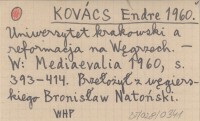 KOVÁCS Endre 1960.
Uniwersytet krakowski a
reformacja na Węgrzech. —
W: Mediaevalia 1960, s.
393-414. Przełożył z węgiers-
kiego Bronisław Natoński.
WHP